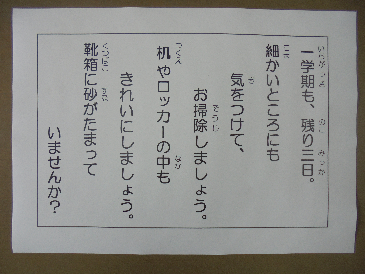 一学期も、残り三日。
細かいところにも
気をつけて、
お掃除しましょう。
机やロッカーの中も
きれいにしましょう。
靴箱に砂がたまって
いませんか？